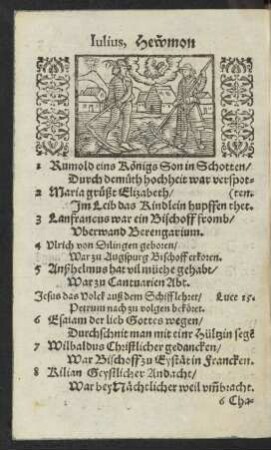 Iulius, Hewmon
1 Rumold eins Königs Son in Schotten/
Durch demůth hochheit war verspot-
2 Maria grüßt Elizabeth/ (ten.
Im Leib das Kindlein hupffen thet.
3 Lanfrancus war ein Bischoff fromb/
Vberwand Berengarium.
4 Vlrich von Dilingen geboren/
War zu Augspurg Bischof erkoren.
5 Anßhelmus hat vil müche gehabt/
War zu Cantuarien Abt.
Jesus das Volck auß dem Schiff lehret/ Luce 15.
Petrum nach zu volgen bekört.
6 Esaiam der lieb Gottes wegen/
Durchschnit man mit einr Hültzin segē
7 Wilbaldus Christlicher gedancken/
War Bischoff zu Eystät in Francken.
8 Kilian Geystlicher Andacht/
War bey Nächtlicher weil vm̄bracht.
6 Cha-